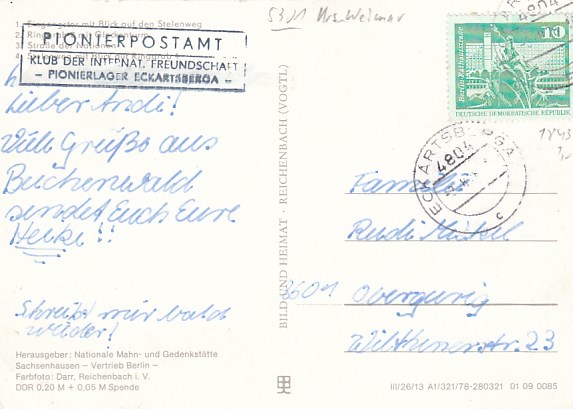 1. Eingangstor mit Blick auf den Stelenweg
2. Ring
3. Straße der Nationen
PIONIERPOSTAMT
KLUB DER INTERNAT. FREUNDSCHAFT
– PIONIERLAGER ECKARTSBERGA –
Lieber Andi!
Viele Grüße aus
Buchenwald
sendet Euch Eure
Heike!!
Schreibt mir bald
wieder!
Herausgeber: Nationale Mahn- und Gedenkstätte
Sachsenhausen – Vertrieb Berlin –
Farbfoto: Darr, Reichenbach i. V.
DDR 0,20 M + 0,05 M Spende
BILD UND HEIMAT · REICHENBACH (VOGTL)
5301 Weimar
4804
10
Berlin, Rathausstraße
DEUTSCHE DEMOKRATISCHE REPUBLIK
1843
ECKARTSBERGA
4804
c
Familie
Rudi
8601 Obergurig
Wilthenerstr. 23
III/26/13 A1/321/78-280321 01 09 0085